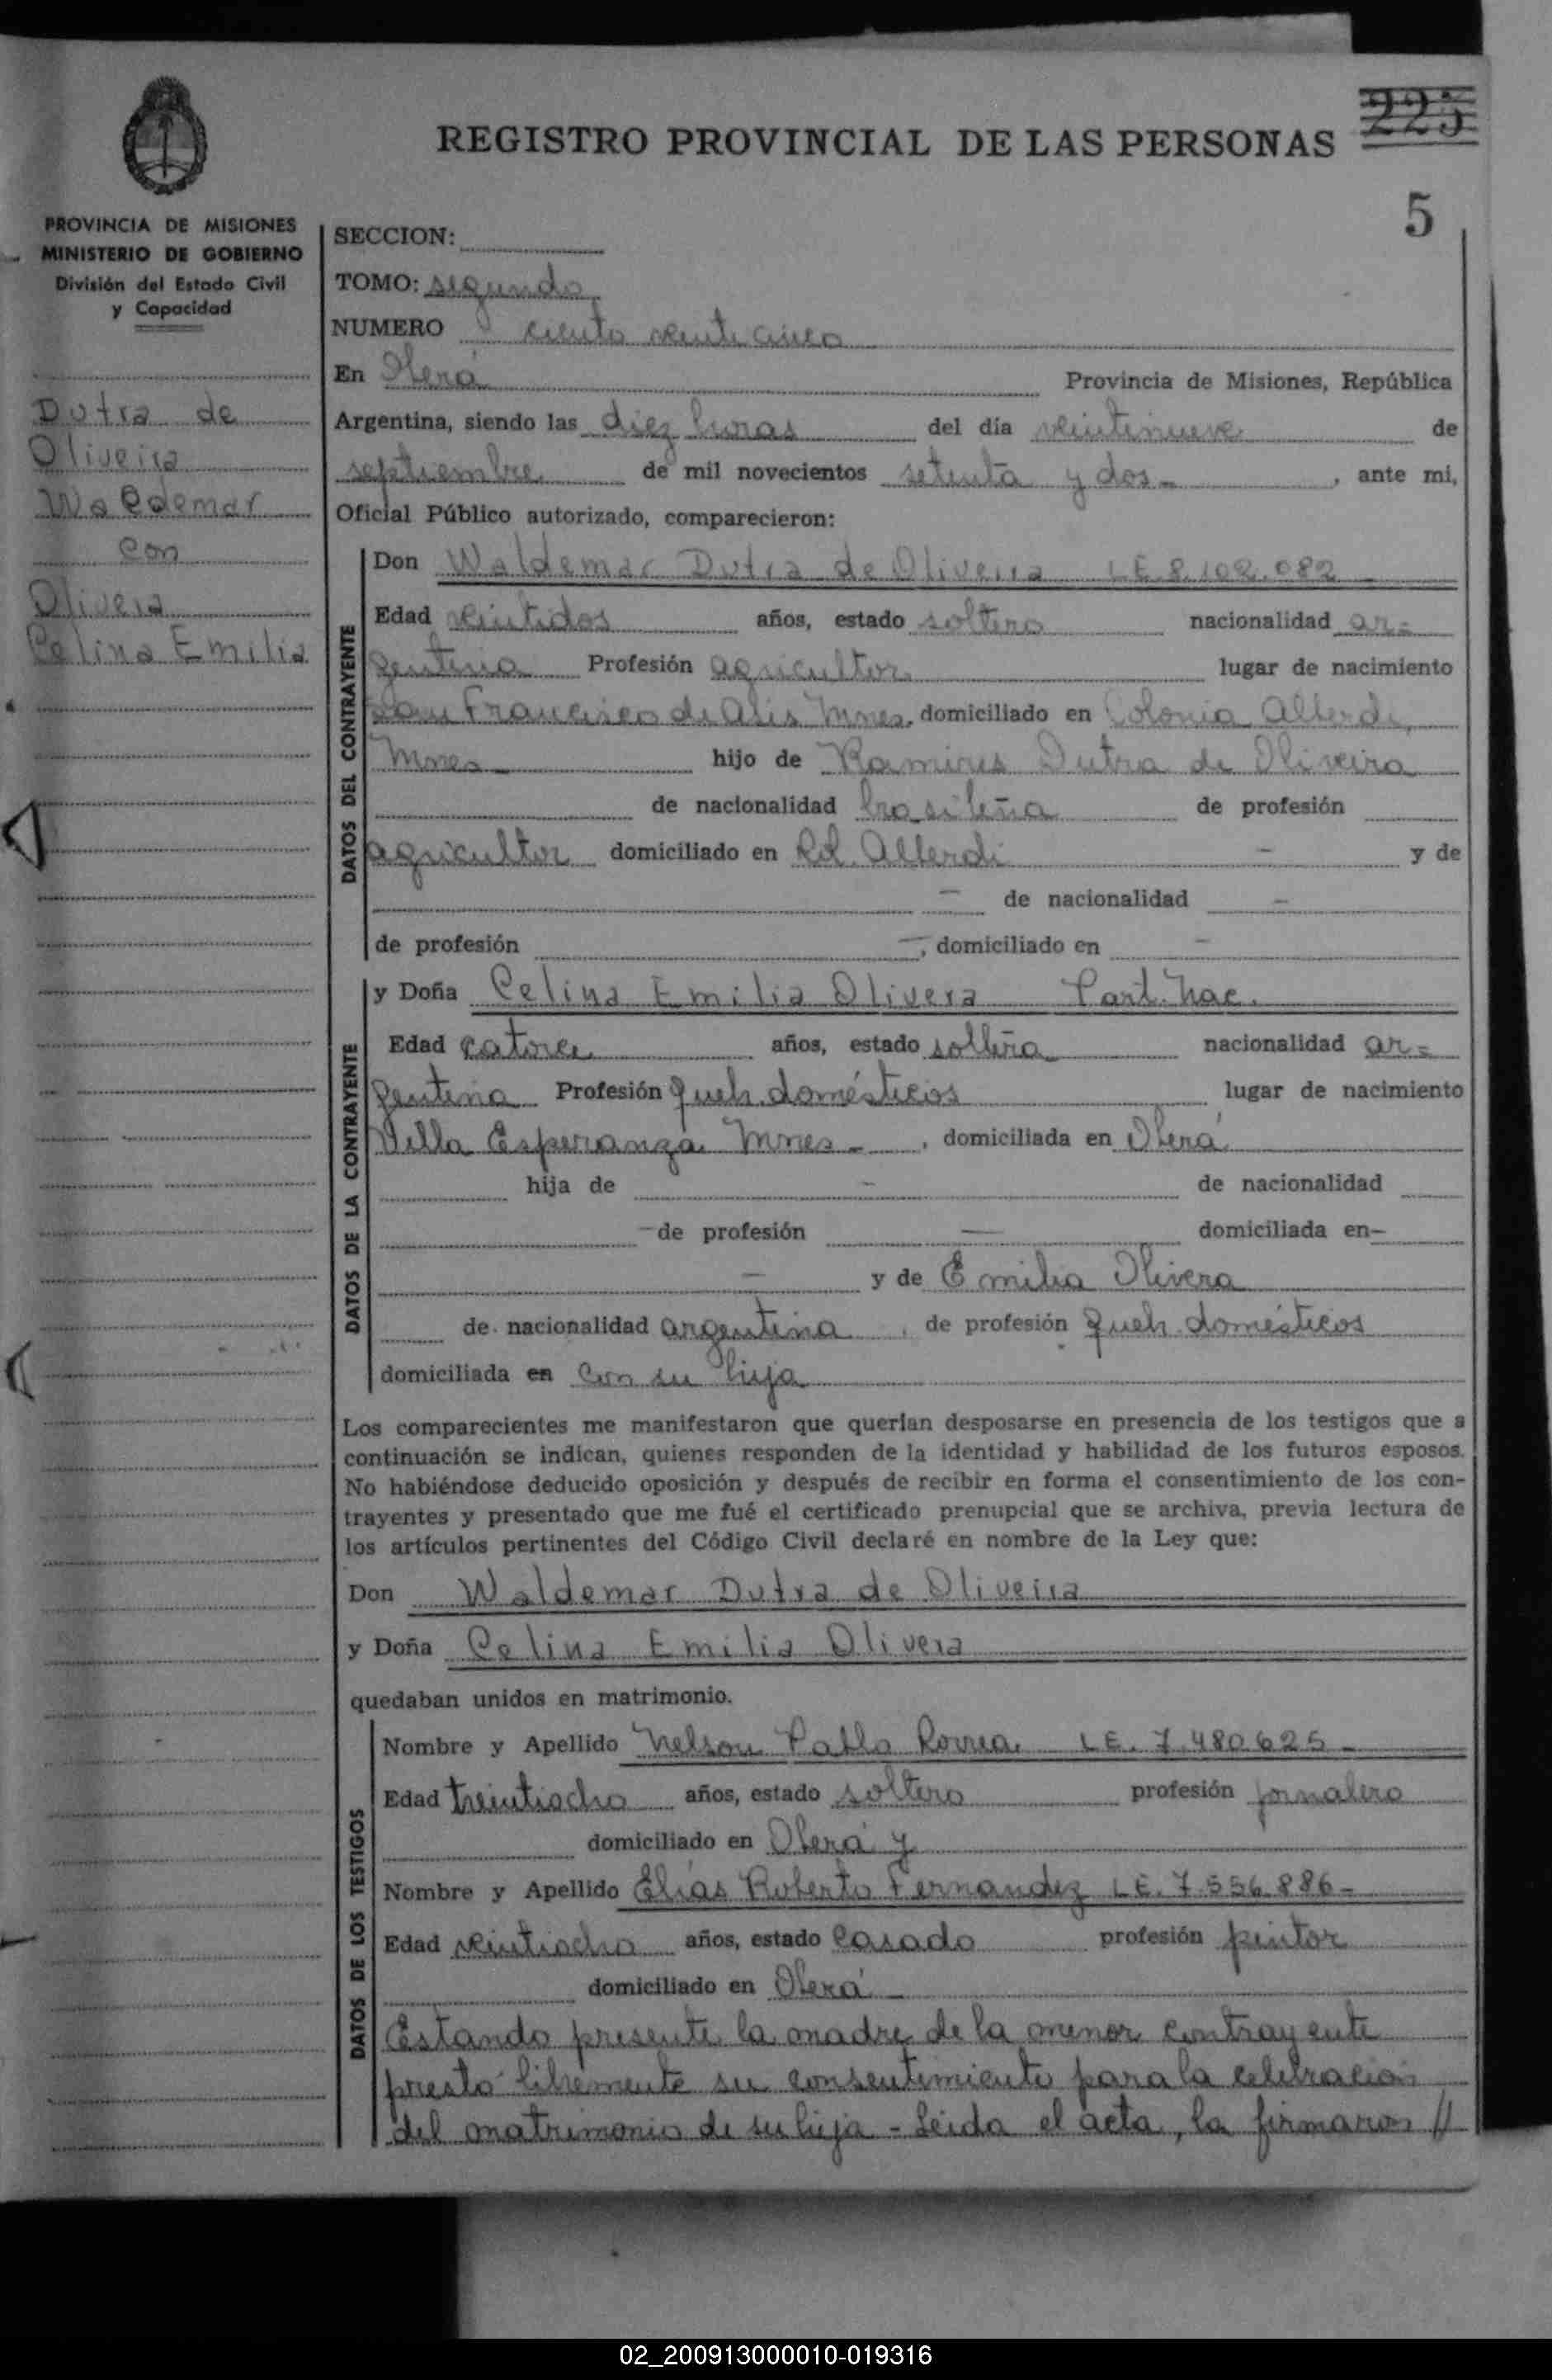 225
REGISTRO PROVINCIAL DE LAS PERSONAS
5
PROVINCIA DE MISIONES
MINISTERIO DE GOBIERNO
División del Estado Civil
y Capacidad
Dutra de
Oliveira
Waldemar
con
Olivera
Celina Emilia
SECCION:
TOMO: segundo
NUMERO ciento veinticinco
En Oberá Provincia de Misiones, República
Argentina, siendo las diez horas del día veintinueve de
septiembre de mil novecientos setenta y dos - , ante mi,
Oficial Público autorizado, comparecieron:
DATOS DEL CONTRAYENTE
Don Waldemar Dutra de Oliveira LE.8.102.082
Edad veintidos años, estado soltero nacionalidad ar=
gentina Profesión agricultor lugar de nacimiento
San Francisco de Asis Mnes. domiciliado en Colonia Alberdi,
Mnes - hijo de Ramires Dutra de Oliveira
de nacionalidad brasileña de profesión
agricultor domiciliado en Col. Alberdi - y de
- de nacionalidad -
de profesión -, domiciliado en -
DATOS DE LA CONTRAYENTE
y Doña Celina Emilia Olivera Part. Nac.
Edad catorce años, estado soltera nacionalidad ar=
gentina Profesión queh. domésticos lugar de nacimiento
Villa Esperanza Mnes - , domiciliada en Oberá
hija de - de nacionalidad
- de profesión - domiciliada en-
- y de Emilia Olivera
de nacionalidad argentina , de profesión queh. domésticos
domiciliada en con su hija
Los comparecientes me manifestaron que querían desposarse en presencia de los testigos que a
continuación se indican, quienes responden de la identidad y habilidad de los futuros esposos.
No habiéndose deducido oposición y después de recibir en forma el consentimiento de los con-
trayentes y presentado que me fué el certificado prenupcial que se archiva, previa lectura de
los artículos pertinentes del Código Civil declaré en nombre de la Ley que:
Don Waldemar Dutra de Oliveira
y Doña Celina Emilia Olivera
quedaban unidos en matrimonio.
DATOS DE LOS TESTIGOS
Nombre y Apellido Nelson Pablo LE. 7.480.625 -
Edad treintiocho años, estado soltero profesión jornalero
domiciliado en Oberá y
Nombre y Apellido Elías Roberto Fernandez LE. 7.556.886 -
Edad veintiocho años, estado casado profesión pintor
domiciliado en Oberá -
Estando presente la madre de la menor contrayente
prestó libremente su consentimiento para la celebración
del matrimonio de su hija - Leida el acta, la firmaron //
02_200913000010-019316